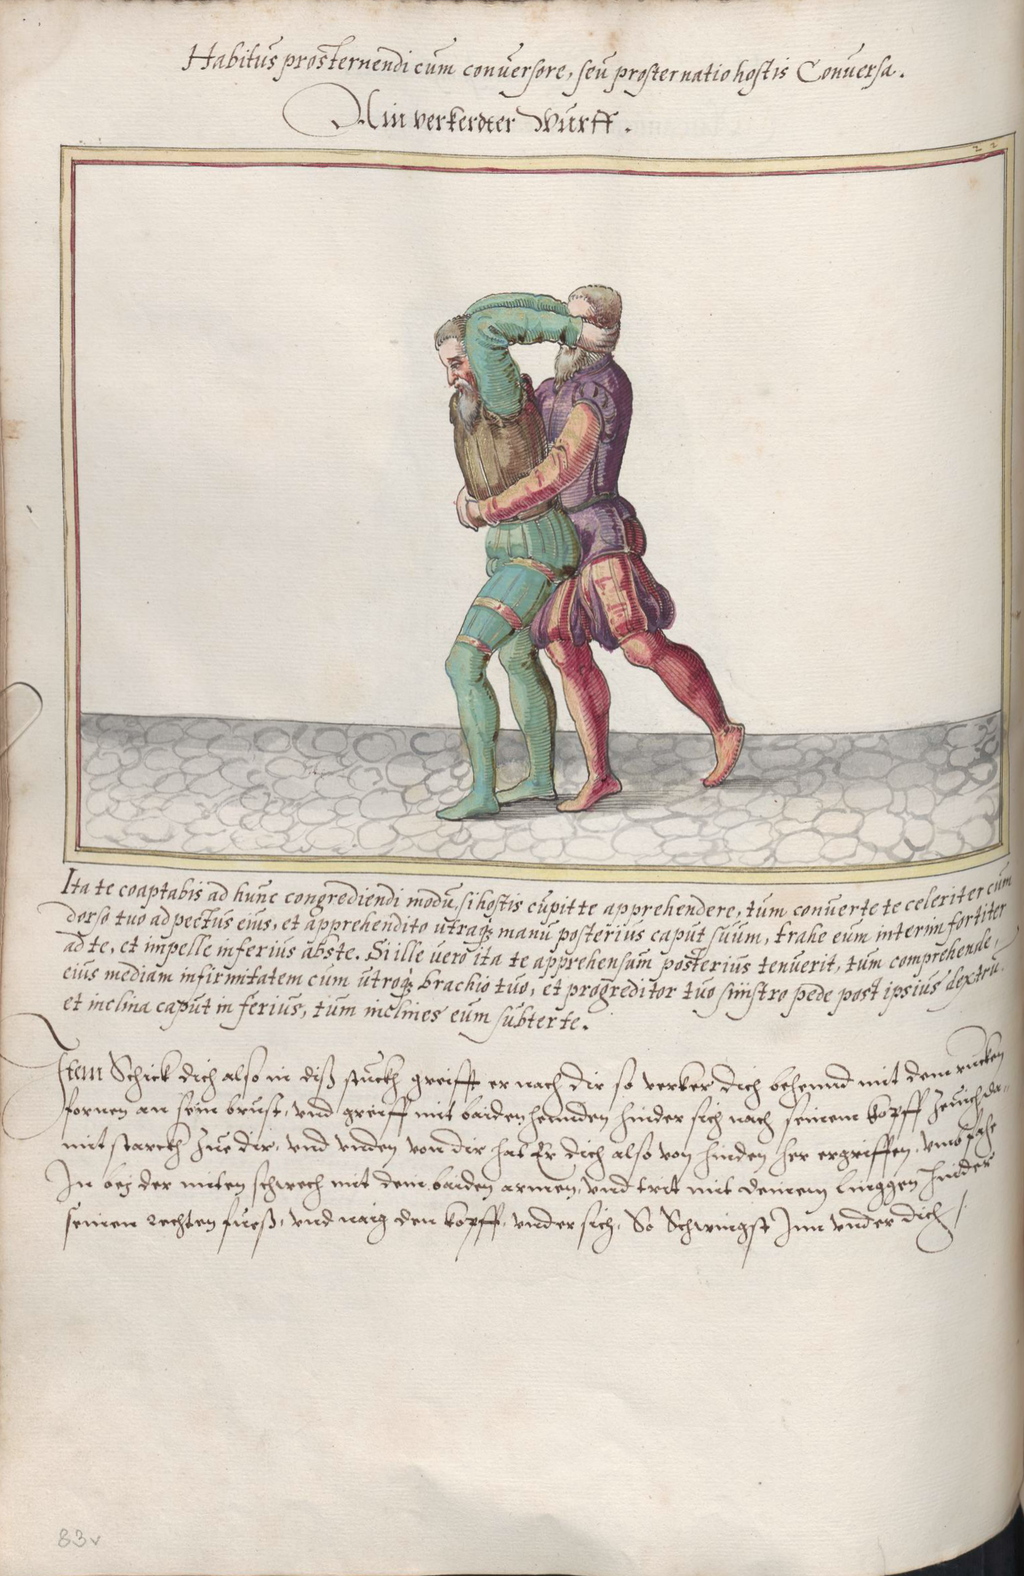 Habitus prosternendi cum conuersore, seu prosternatio hostis Conuersa.
Ain verkerdter Wurff.
22
Ita te coaptabis ad hunc congrediendi modu, si hostis cupit te apprehendere, tum conuerte te celeriter cum
dorso tuo ad pectus eius, et apprehendito utraq; manu posterius caput suum, trahe eum interim fortiter
ad te, et impelle inferius abs te. Si ille uero ita te apprehensum posterius tenuerit, tum comprehende,
eius mediam infirmitatem cum utroq; brachio tuo, et progreditor tuo sinistro pede post ipsius dextru.
et inclina caput inferius, tum inclines eum subter te.
Item Schick dich also in diß stuckh greifft er nach dir so verker dich behennd mit dem rucken
fornen an sein brust, vnd greiff mit baiden hennden hinder sich nach seinem kopff Zeuch da-
mit starckh Zue dir, vnd vnden von dir hat Er dich also von hinden her ergriffen,
In bey der miten schwech mit dem baiden armen, vnd trit mit deinem linggen hinder
seinen rechten fueß, vnd naig den kopff vnder sich, So Schwingst Inn vnder dich /
83v